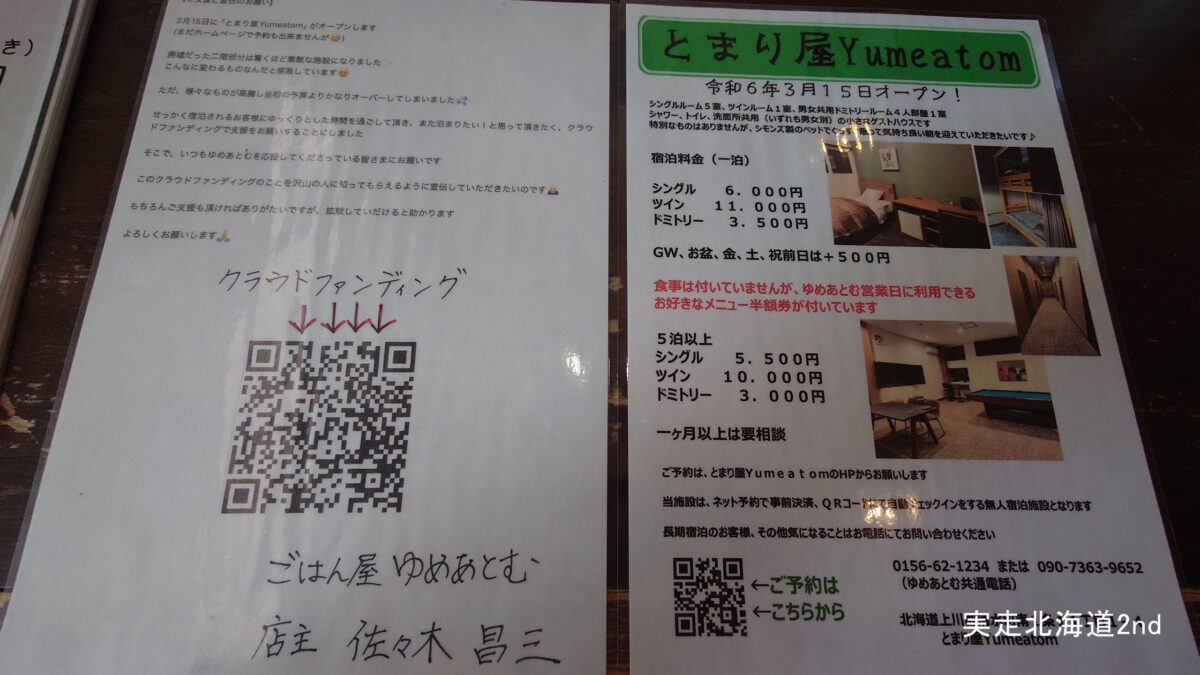 き）
【ご支援と宣伝のお願い】
3月15日に「とまり屋Yumeatom」がオープンします
(まだホームページで予約も出来ませんが😅)
廃墟だった二階部分は驚くほど素敵な施設になりました
こんなに変わるものなんだと感激しています😍
ただ、様々なものが高騰し当初の予算よりかなりオーバーしてしまいました💦
せっかく宿泊されるお客様にゆっくりとした時間を過ごして頂き、また泊まりたい！と思って頂きたく、クラウ
ドファンディングで支援をお願いすることにしました
そこで、いつもゆめあとむを応援してくださっている皆さまにお願いです
このクラウドファンディングのことを沢山の人に知ってもらえるように宣伝していただきたいのです🙇
もちろんご支援も頂ければありがたいですが、拡散していだけると助かります
よろしくお願いします🙏
クラウドファンディング
↓↓↓↓
ごはん屋 ゆめあとむ
店主 佐々木 昌三
とまり屋Yumeatom
令和６年３月１５日オープン！
シングルルーム５室、ツインルーム１室、男女共用ドミトリールーム４人部屋１室
シャワー、トイレ、洗面所共用（いずれも男女別）の小さなゲストハウスです
特別なものはありませんが、シモンズ製のベッドでぐっすり眠って気持ち良い朝を迎えていただきたいです♪
宿泊料金（一泊）
シングル　６．０００円
ツイン　１１．０００円
ドミトリー　３．５００円
GW、お盆、金、土、祝前日は＋５００円
食事は付いていませんが、ゆめあとむ営業日に利用できる
お好きなメニュー半額券が付いています
５泊以上
シングル　５．５００円
ツイン　１０．０００円
ドミトリー　３．０００円
一ヶ月以上は要相談
ご予約は、とまり屋ＹｕｍｅａｔｏｍのHPからお願いします
当施設は、ネット予約で事前決済、ＱＲコードにて自動チェックインをする無人宿泊施設となります
長期宿泊のお客様、その他気になることはお電話にてお問い合わせください
←ご予約は
←こちらから
0156-62-1234 または 090-7363-9652
（ゆめあとむ共通電話）
北海道上川
とまり屋Yumeatom
実走北海道2nd